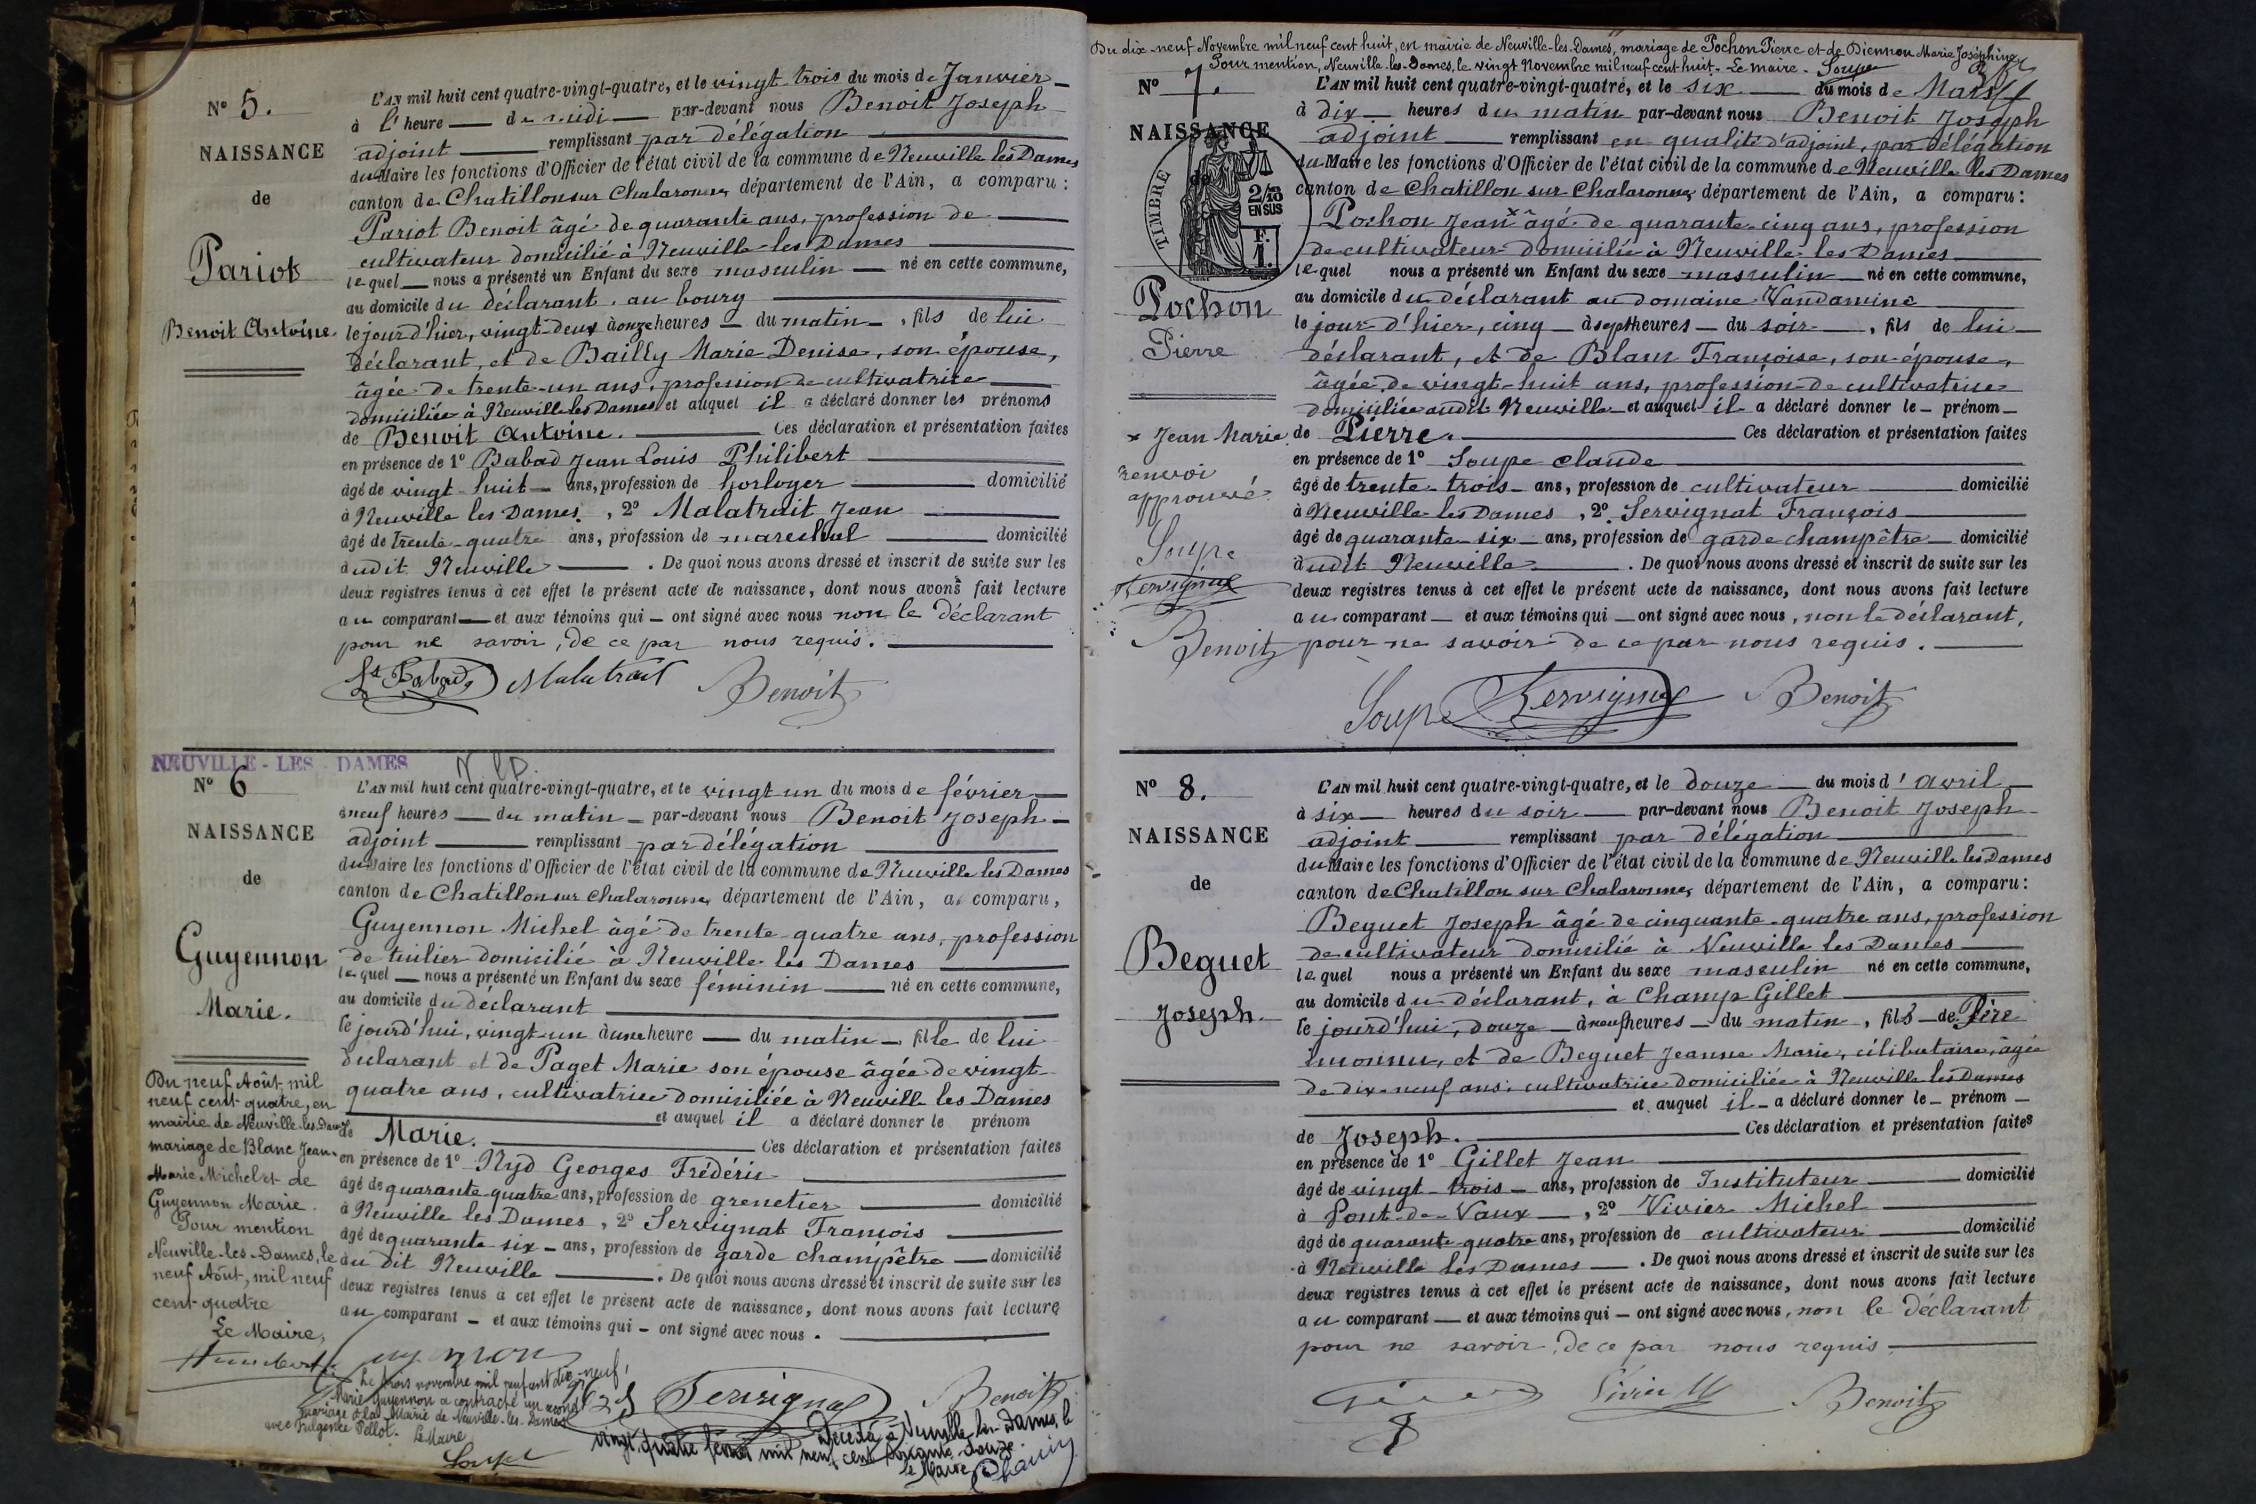 N° 5.
NAISSANCE
de
Pariot
Benoit Antoine.
L'AN mil huit cent quatre-vingt-quatre, et le vingt-trois du mois de Janvier
à l'heure de midi par-devant nous Benoit Joseph
adjoint remplissant par délégation
du Maire les fonctions d'Officier de l'état civil de la commune de Neuville les Dames
canton de Chatillon sur Chalaronne, département de l'Ain, a comparu :
Pariot Benoit âgé de quarante ans, profession de
cultivateur domicilié à Neuville les Dames
lequel nous a présenté un Enfant du sexe masculin né en cette commune,
au domicile du déclarant, au bourg
le jour d'hier, vingt-deux à onze heures du matin, fils de lui
déclarant, et de Bailly Marie Denise, son épouse,
âgée de trente-un ans, profession de cultivatrice
domiciliée à Neuville les Dames et auquel il a déclaré donner les prénoms
de Benoit Antoine. Ces déclaration et présentation faites
en présence de 1° Babad Jean Louis Philibert
âgé de vingt-huit ans, profession de horloger domicilié
à Neuville les Dames, 2° Malatrait Jean
âgé de trente-quatre ans, profession de marechal domicilié
audit Neuville. De quoi nous avons dressé et inscrit de suite sur les
deux registres tenus à cet effet le présent acte de naissance, dont nous avons fait lecture
au comparant et aux témoins qui ont signé avec nous non le déclarant
pour ne savoir, de ce par nous requis.
Babad Malatrait Benoit
NEUVILLE-LES-DAMES
N° 6
NAISSANCE
de
Guyennon
Marie.
Du neuf Août, mil
neuf cent quatre, en
mairie de Neuville-les-Dames
mariage de Blanc Jean-
Marie Michel et de
Guyennon Marie.
Pour mention
Neuville-les-Dames, le
neuf Août, mil neuf
cent quatre
Le Maire,
L'AN mil huit cent quatre-vingt-quatre, et le vingt-un du mois de février
à neuf heures du matin par-devant nous Benoit Joseph
adjoint remplissant par délégation
du Maire les fonctions d'Officier de l'état civil de la commune de Neuville les Dames
canton de Chatillon sur Chalaronne, département de l'Ain, a comparu,
Guyennon Michel âgé de trente-quatre ans, profession
de tuilier domicilié à Neuville les Dames
lequel nous a présenté un Enfant du sexe féminin né en cette commune,
au domicile du déclarant
le jourd'hui, vingt-un à une heure du matin, fille de lui
déclarant et de Paget Marie son épouse âgée de vingt-
quatre ans, cultivatrice domiciliée à Neuville les Dames
et auquel il a déclaré donner le prénom
de Marie. Ces déclaration et présentation faites
en présence de 1° Nyd Georges Frédéric
âgé de quarante-quatre ans, profession de grenetier domicilié
à Neuville les Dames, 2° Servignat François
âgé de quarante six ans, profession de garde champêtre domicilié
au dit Neuville. De quoi nous avons dressé et inscrit de suite sur les
deux registres tenus à cet effet le présent acte de naissance, dont nous avons fait lecture
au comparant et aux témoins qui ont signé avec nous.
Guyennon Servignat Benoit
Le trois novembre mil neuf cent dix-neuf,
Marie Guyennon a contracté un second
mariage à la Mairie de Neuville-les-Dames
avec Fulgence Pellot. Le Maire
Soupe
Décédée à Neuville-les-Dames, le
vingt quatre février mil neuf cent soixante-douze.
Le Maire
Du dix-neuf Novembre mil neuf cent huit, en mairie de Neuville-les-Dames, mariage de Pochon Pierre et de Diennon Marie Joséphine
Pour mention, Neuville-les-Dames, le vingt Novembre mil neuf cent huit. Le Maire. Soupe
N° 7.
NAISSANCE
de
TIMBRE
2/10
EN SUS
F.
1.
Pochon
Pierre
× Jean Marie
renvoi
approuvé
Soupe
Servignat
Benoit
L'AN mil huit cent quatre-vingt-quatre, et le six du mois de Mars
à dix heures du matin par-devant nous Benoit Joseph
adjoint remplissant en qualité d'adjoint, par délégation
du Maire les fonctions d'Officier de l'état civil de la commune de Neuville les Dames
canton de Chatillon sur Chalaronne, département de l'Ain, a comparu :
Pochon Jean × âgé de quarante cinq ans, profession
de cultivateur domicilié à Neuville les Dames
lequel nous a présenté un Enfant du sexe masculin né en cette commune,
au domicile du déclarant au domaine Vandamine
le jour d'hier, cinq à sept heures du soir, fils de lui
déclarant, et de Blanc Françoise, son épouse,
âgée de vingt-huit ans, profession de cultivatrice
domiciliée audit Neuville et auquel il a déclaré donner le prénom
de Pierre. Ces déclaration et présentation faites
en présence de 1° Soupe Claude
âgé de trente-trois ans, profession de cultivateur domicilié
à Neuville les Dames, 2° Servignat François
âgé de quarante-six ans, profession de garde champêtre domicilié
audit Neuville. De quoi nous avons dressé et inscrit de suite sur les
deux registres tenus à cet effet le présent acte de naissance, dont nous avons fait lecture
au comparant et aux témoins qui ont signé avec nous, non le déclarant,
pour ne savoir de ce par nous requis.
Soupe Servignat Benoit
N° 8.
NAISSANCE
de
Beguet
Joseph.
L'AN mil huit cent quatre-vingt-quatre, et le douze du mois d'avril
à six heures du soir par-devant nous Benoit Joseph
adjoint remplissant par délégation
du Maire les fonctions d'Officier de l'état civil de la commune de Neuville les Dames
canton de Chatillon sur Chalaronne, département de l'Ain, a comparu :
Beguet Joseph âgé de cinquante-quatre ans, profession
de cultivateur domicilié à Neuville les Dames
lequel nous a présenté un Enfant du sexe masculin né en cette commune,
au domicile du déclarant, à Champ Gillet
le jourd'hui, douze à neuf heures du matin, fils de Père
inconnu, et de Beguet Jeanne Marie, célibataire, âgée
de dix-neuf ans, cultivatrice domiciliée à Neuville les Dames
et auquel il a déclaré donner le prénom
de Joseph. Ces déclaration et présentation faites
en présence de 1° Gillet Jean
âgé de vingt-trois ans, profession de Instituteur domicilié
à Pont-de-Vaux, 2° Vivier Michel
âgé de quarante-quatre ans, profession de cultivateur domicilié
à Neuville les Dames. De quoi nous avons dressé et inscrit de suite sur les
deux registres tenus à cet effet le présent acte de naissance, dont nous avons fait lecture
au comparant et aux témoins qui ont signé avec nous, non le déclarant
pour ne savoir, de ce par nous requis.
Vivier M Benoit